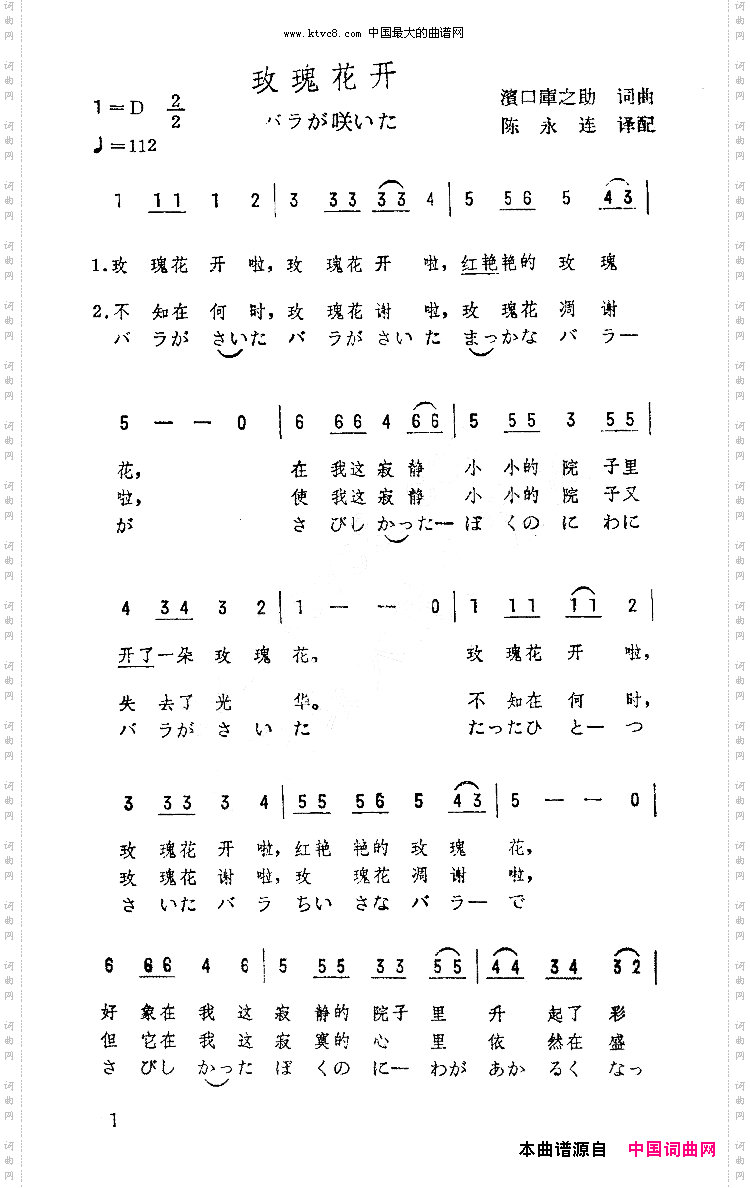 www.ktvc8.com 中国最大的曲谱网
玫瑰花开
1=D 2/2 バラが咲いた 濱口庫之助 词曲
♩=112 陈永连 译配
1 1 1 1 2 | 3 3 3 3 3 4 | 5 5 6 5 4 3 |
1.玫 瑰花 开 啦,玫 瑰花 开 啦,红艳艳的 玫 瑰
2.不 知在 何 时,玫 瑰花 谢 啦,玫 瑰花 凋 谢
バ ラが さいた バ ラがさいた まっかな バ ラー
5 — — 0 | 6 6 6 4 6 6 | 5 5 5 3 5 5 |
花, 在 我这 寂 静 小 小的 院 子里
啦, 使 我这 寂 静 小 小的 院 子又
が さ びし かったー ぼ くの に わに
4 3 4 3 2 | 1 — — 0 | 1 1 1 1 1 2 |
开了一朵 玫 瑰 花, 玫 瑰花 开 啦,
失 去了 光 华。 不 知在 何 时,
バ ラが さ い た たったひ とー つ
3 3 3 3 4 | 5 5 5 6 5 4 3 | 5 — — 0 |
玫 瑰花 开 啦,红艳 艳的 玫 瑰 花,
玫 瑰花 谢 啦,玫 瑰花 凋 谢 啦,
さ いた バ ラ ちい さな バ ラー で
6 6 6 4 6 | 5 5 5 3 3 5 5 | 4 4 3 4 3 2 |
好 象在 我 这 寂 静的 院子 里 升 起了 彩
但 它在 我 这 寂 寞的 心 里 依 然在 盛
さ びし かった ぼ くの にー わが あか るく なっ
1
本曲谱源自 中国词曲网
词曲网